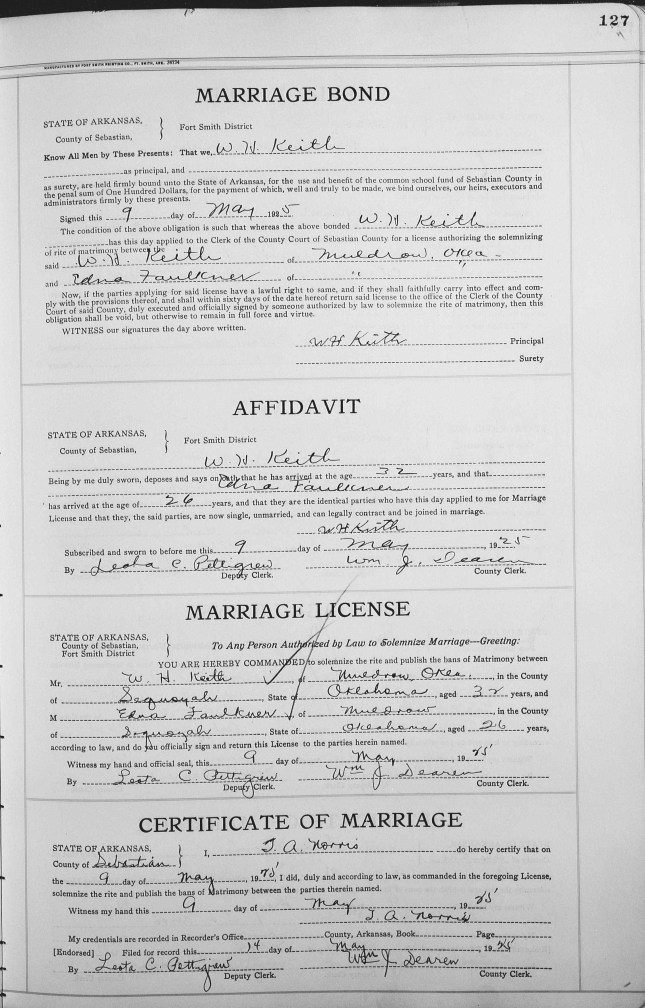 127
MANUFACTURED BY FORT SMITH PRINTING CO., FT. SMITH, ARK.
MARRIAGE BOND
STATE OF ARKANSAS,
County of Sebastian, } Fort Smith District
Know All Men by These Presents: That we, W. H. Keith
as principal, and
as surety, are held firmly bound unto the State of Arkansas, for the use and benefit of the common school fund of Sebastian County in
the penal sum of One Hundred Dollars, for the payment of which, well and truly to be made, we bind ourselves, our heirs, executors and
administrators firmly by these presents.
Signed this 9 day of May 1925
The condition of the above obligation is such that whereas the above bonded W. H. Keith
has this day applied to the Clerk of the County Court of Sebastian County for a license authorizing the solemnizing
of rite of matrimony between the
said W. H. Keith of Muldrow, Okla.
and Edna Faulkner of " "
Now, if the parties applying for said license have a lawful right to same, and if they shall faithfully carry into effect and com-
ply with the provisions thereof, and shall within sixty days of the date hereof return said license to the office of the Clerk of the County
Court of said County, duly executed and officially signed by someone authorized by law to solemnize the rite of matrimony, then this
obligation shall be void, but otherwise to remain in full force and virtue.
WITNESS our signatures the day above written.
W H Keith Principal
Surety
AFFIDAVIT
STATE OF ARKANSAS,
County of Sebastian, } Fort Smith District
W. H. Keith
Being by me duly sworn, deposes and says on oath that he has arrived at the age 32 years, and that
Edna Faulkner
has arrived at the age of 26 years, and that they are the identical parties who have this day applied to me for Marriage
License and that they, the said parties, are now single, unmarried, and can legally contract and be joined in marriage.
W H Keith
Subscribed and sworn to before me this 9 day of May, 1925
By Leota C. Pettigrew Wm. J. Dearen
Deputy Clerk. County Clerk.
MARRIAGE LICENSE
STATE OF ARKANSAS,
County of Sebastian,
Fort Smith District } To Any Person Authorized by Law to Solemnize Marriage—Greeting:
YOU ARE HEREBY COMMANDED to solemnize the rite and publish the bans of Matrimony between
Mr. W. H. Keith of Muldrow Okla., in the County
of Sequoyah State of Oklahoma, aged 32 years, and
M Edna Faulkner of Muldrow, in the County
of Sequoyah, State of Oklahoma, aged 26 years,
according to law, and do you officially sign and return this License to the parties herein named.
Witness my hand and official seal, this 9 day of May 1925
By Leota C. Pettigrew Wm J. Dearen
Deputy Clerk. County Clerk.
CERTIFICATE OF MARRIAGE
STATE OF ARKANSAS,
County of Sebastian } I, T. A. Norris do hereby certify that on
the 9 day of May, 1925, I did, duly and according to law, as commanded in the foregoing License,
solemnize the rite and publish the bans of Matrimony between the parties therein named.
Witness my hand this 9 day of May 1925
T. A. Norris
My credentials are recorded in Recorder's Office County, Arkansas, Book Page
[Endorsed] Filed for record this 14 day of May, 1925
By Leota C. Pettigrew Wm J Dearen
Deputy Clerk. County Clerk.